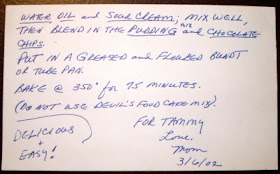 WATER OIL and SOUR CREAM; MIX WELL,
THEN BLEND IN THE PUDDING and CHOCOLATE
CHIPS.
PUT IN A GREASED and FLOURED BUNDT
OR TUBE PAN.
BAKE @ 350° for 75 MINUTES.
(DO NOT USE DEVIL'S FOOD CAKE MIX).
DELICIOUS
+
EASY!
FOR TAMMY
Love,
Mom
3/6/02